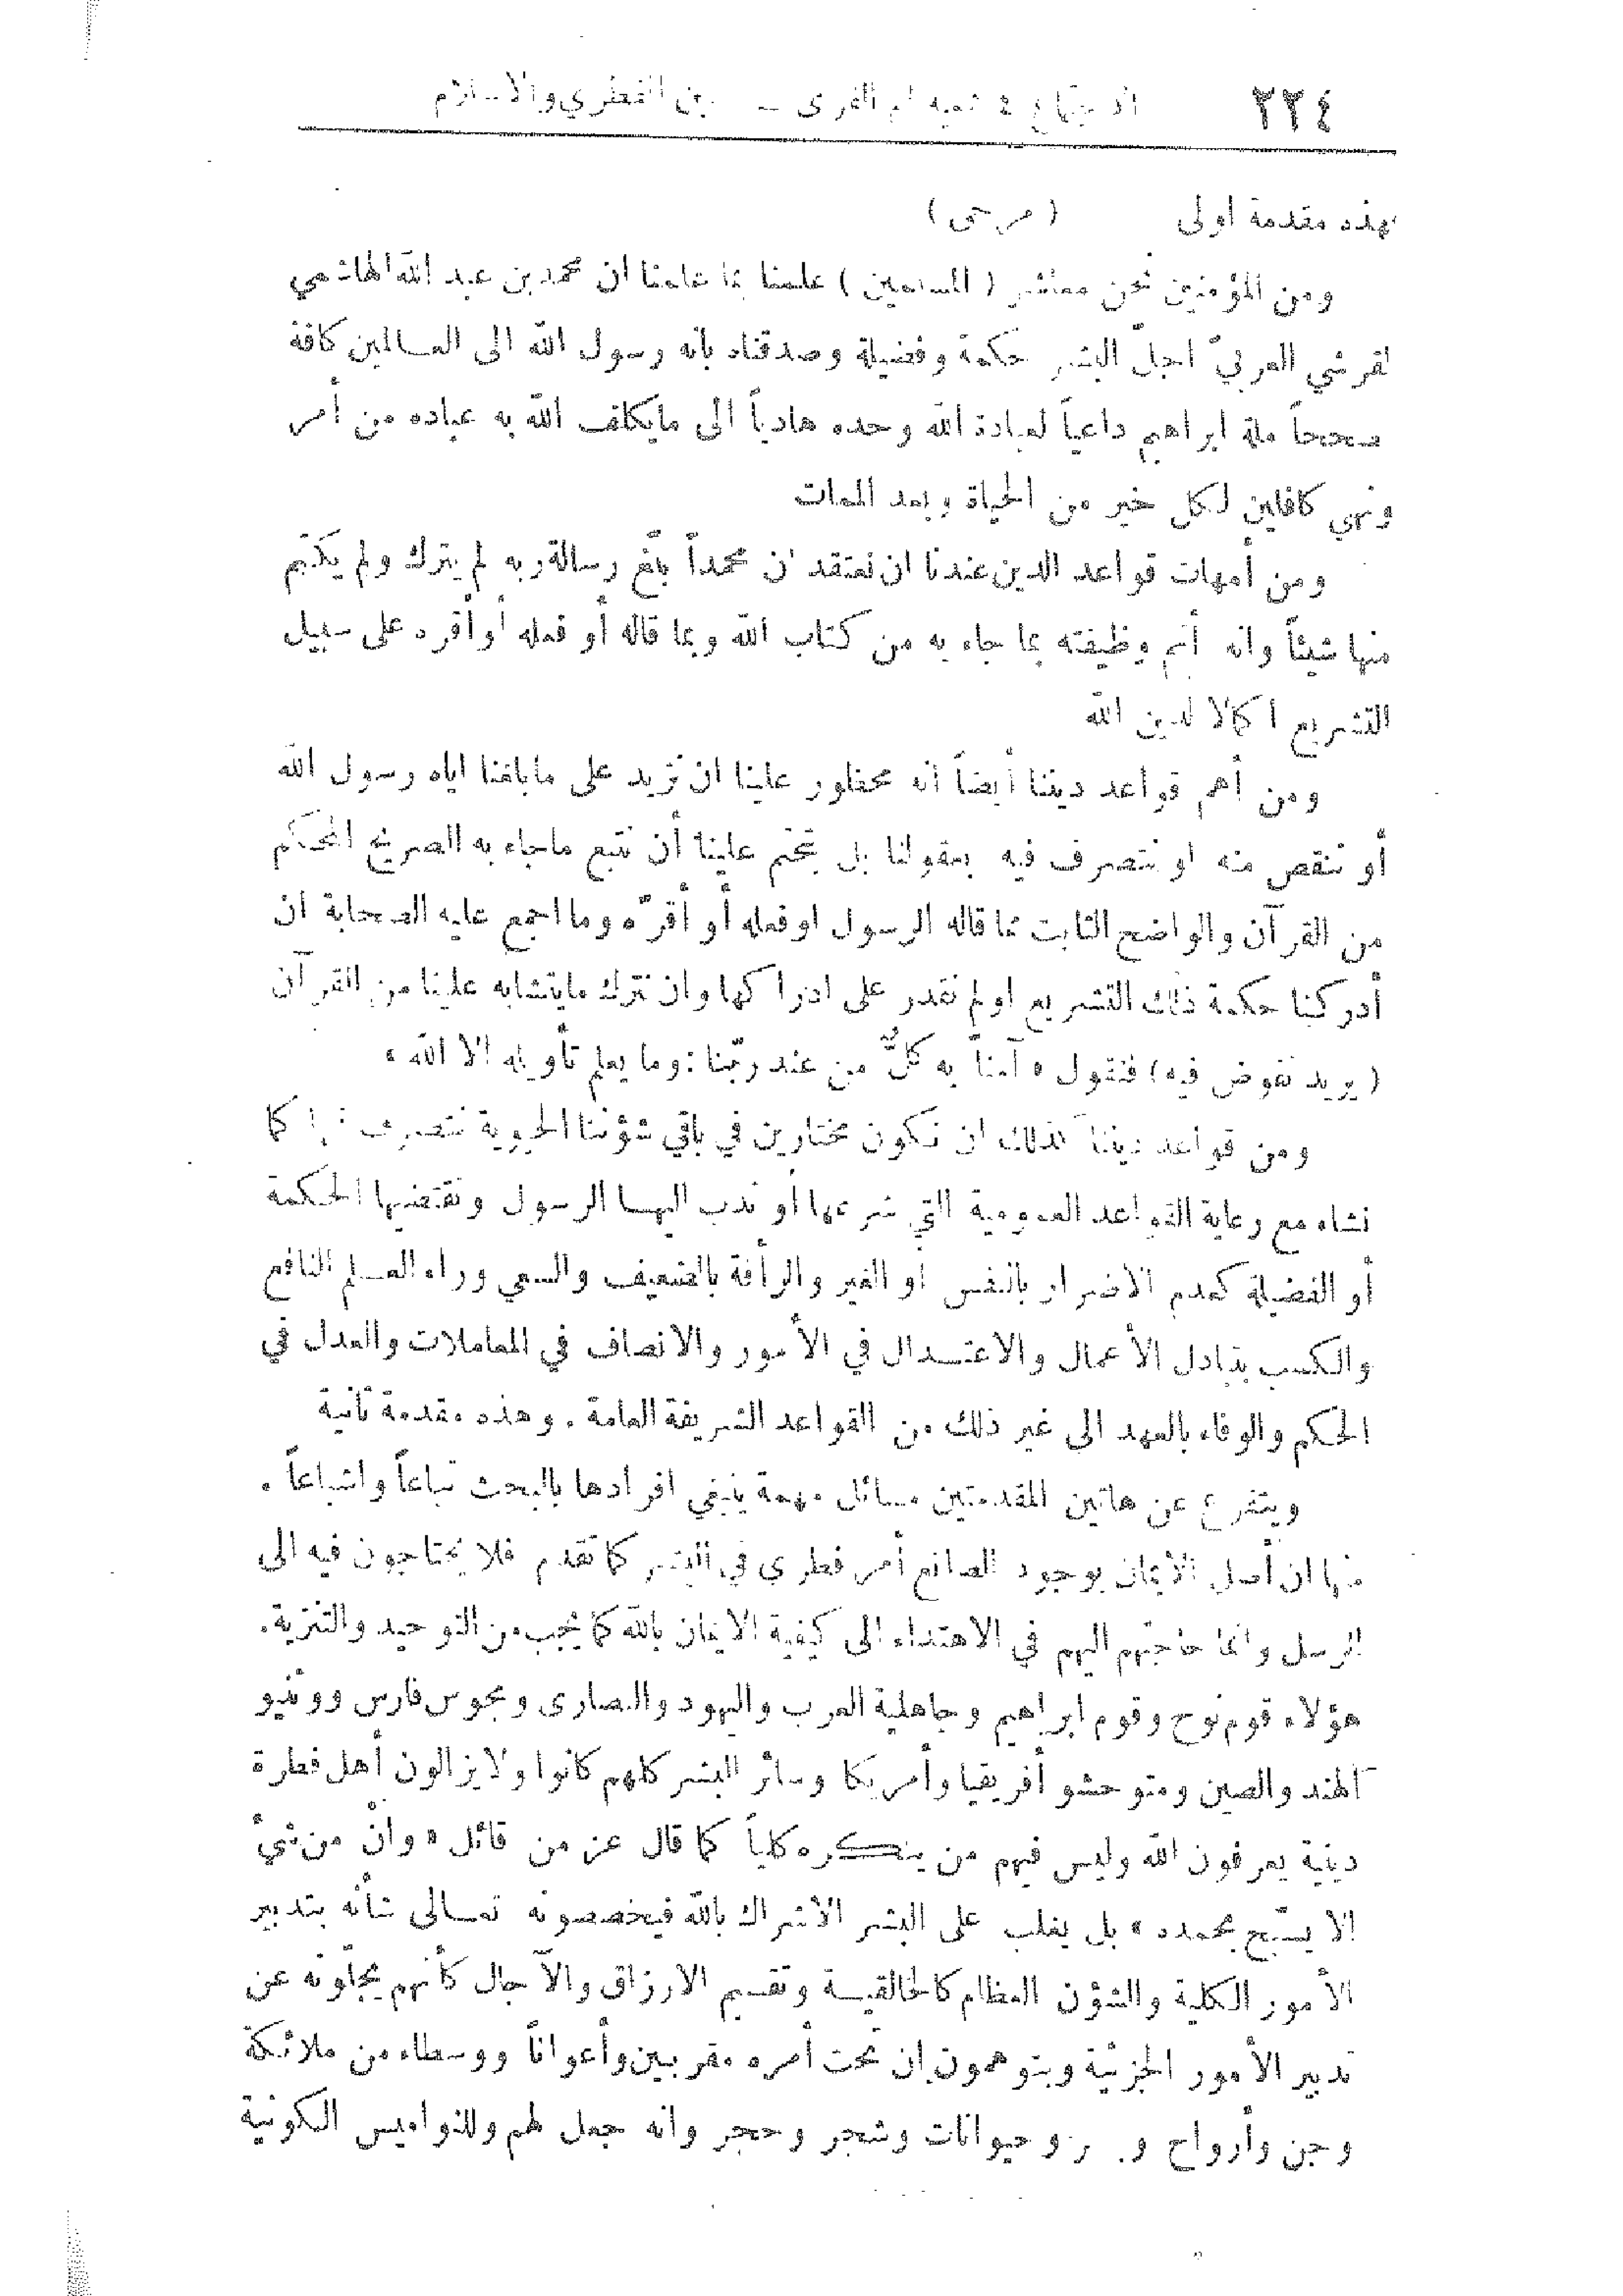 ٢٢٤ الاجتماع لجمعية ام القرى — الدين الفطري والاسلام
فهذه مقدمة اولى (مرحى)
ومن المؤمنين نحن معاشر (المسلمين) علمنا بما علمنا ان محمد بن عبد الله الهاشمي
القرشي العربيّ اجلّ البشر حكمة وفضيلة وصدقناه بانه رسول الله الى العالمين كافة
مصححاً ملة ابراهيم داعياً لعبادة الله وحده هادياً الى مايكلف الله به عباده من أمر
ونهي كافلين لكل خير من الحياة وبعد الممات
ومن أمهات قواعد الدين عندنا ان نعتقد ان محمداً بلّغ رسالة ربه لم يترك ولم يكتم
منها شيئاً وانه أتم وظيفته بما جاء به من كتاب الله وبما قاله أو فعله أو أقره على سبيل
التشريع اكمالا لدين الله
ومن أهم قواعد ديننا أيضاً أنه محظور علينا ان نزيد على مابلغنا اياه رسول الله
أو ننقص منه او نتصرف فيه بعقولنا بل يتحتم علينا أن نتبع ماجاء به الصريح المحكم
من القرآن والواضح الثابت مما قاله الرسول او فعله أو أقرّه وما اجمع عليه الصحابة ان
أدركنا حكمة ذلك التشريع او لم نقدر على ادراكها وان نترك مايتشابه علينا من القرآن
(يريد نفوض فيه) فنقول «آمنا به كلٌّ من عند ربّنا: وما يعلم تأويله الا الله»
ومن قواعد ديننا كذلك ان نكون مختارين في باقي شؤننا الحيوية نتصرف فيها كما
نشاء مع رعاية القواعد العمومية التي شرعها أو ندب اليها الرسول وتقتضيها الحكمة
أو الفضيلة كعدم الاضرار بالنفس او الغير والرأفة بالضعيف والسعي وراء العلم النافع
والكسب بتبادل الأعمال والاعتدال في الأمور والانصاف في المعاملات والعدل في
الحكم والوفاء بالعهد الى غير ذلك من القواعد الشريفة العامة. وهذه مقدمة ثانية
ويتفرع عن هاتين المقدمتين مسائل مهمة ينبغي افرادها بالبحث تباعاً واشباعاً.
منها ان أصل الايمان بوجود الصانع أمر فطري في البشر كما تقدم فلا يحتاجون فيه الى
الرسل وانما حاجتهم اليهم في الاهتداء الى كيفية الايمان بالله كما يجب من التوحيد والتنزيه.
هؤلاء قوم نوح وقوم ابراهيم وجاهلية العرب واليهود والنصارى ومجوس فارس ووثنيو
الهند والصين ومتوحشو أفريقيا وأمريكا وسائر البشر كلهم كانوا ولا يزالون أهل فطرة
دينية يعرفون الله وليس فيهم من ينكره كلياً كما قال عز من قائل «وانْ من شيءٍ
الا يسبّح بحمده» بل يغلب على البشر الاشراك بالله فيخصصونه تعالى شأنه بتدبير
الأمور الكلية والشؤن العظام كالخالقية وتقسيم الارزاق والآجال كأنهم يجلّونه عن
تدبير الأمور الجزئية ويتوهمون ان تحت أمره مقربين وأعواناً ووسطاء من ملائكة
وجن وأرواح و وحيوانات وشجر وحجر وانه جعل لهم وللنواميس الكونية